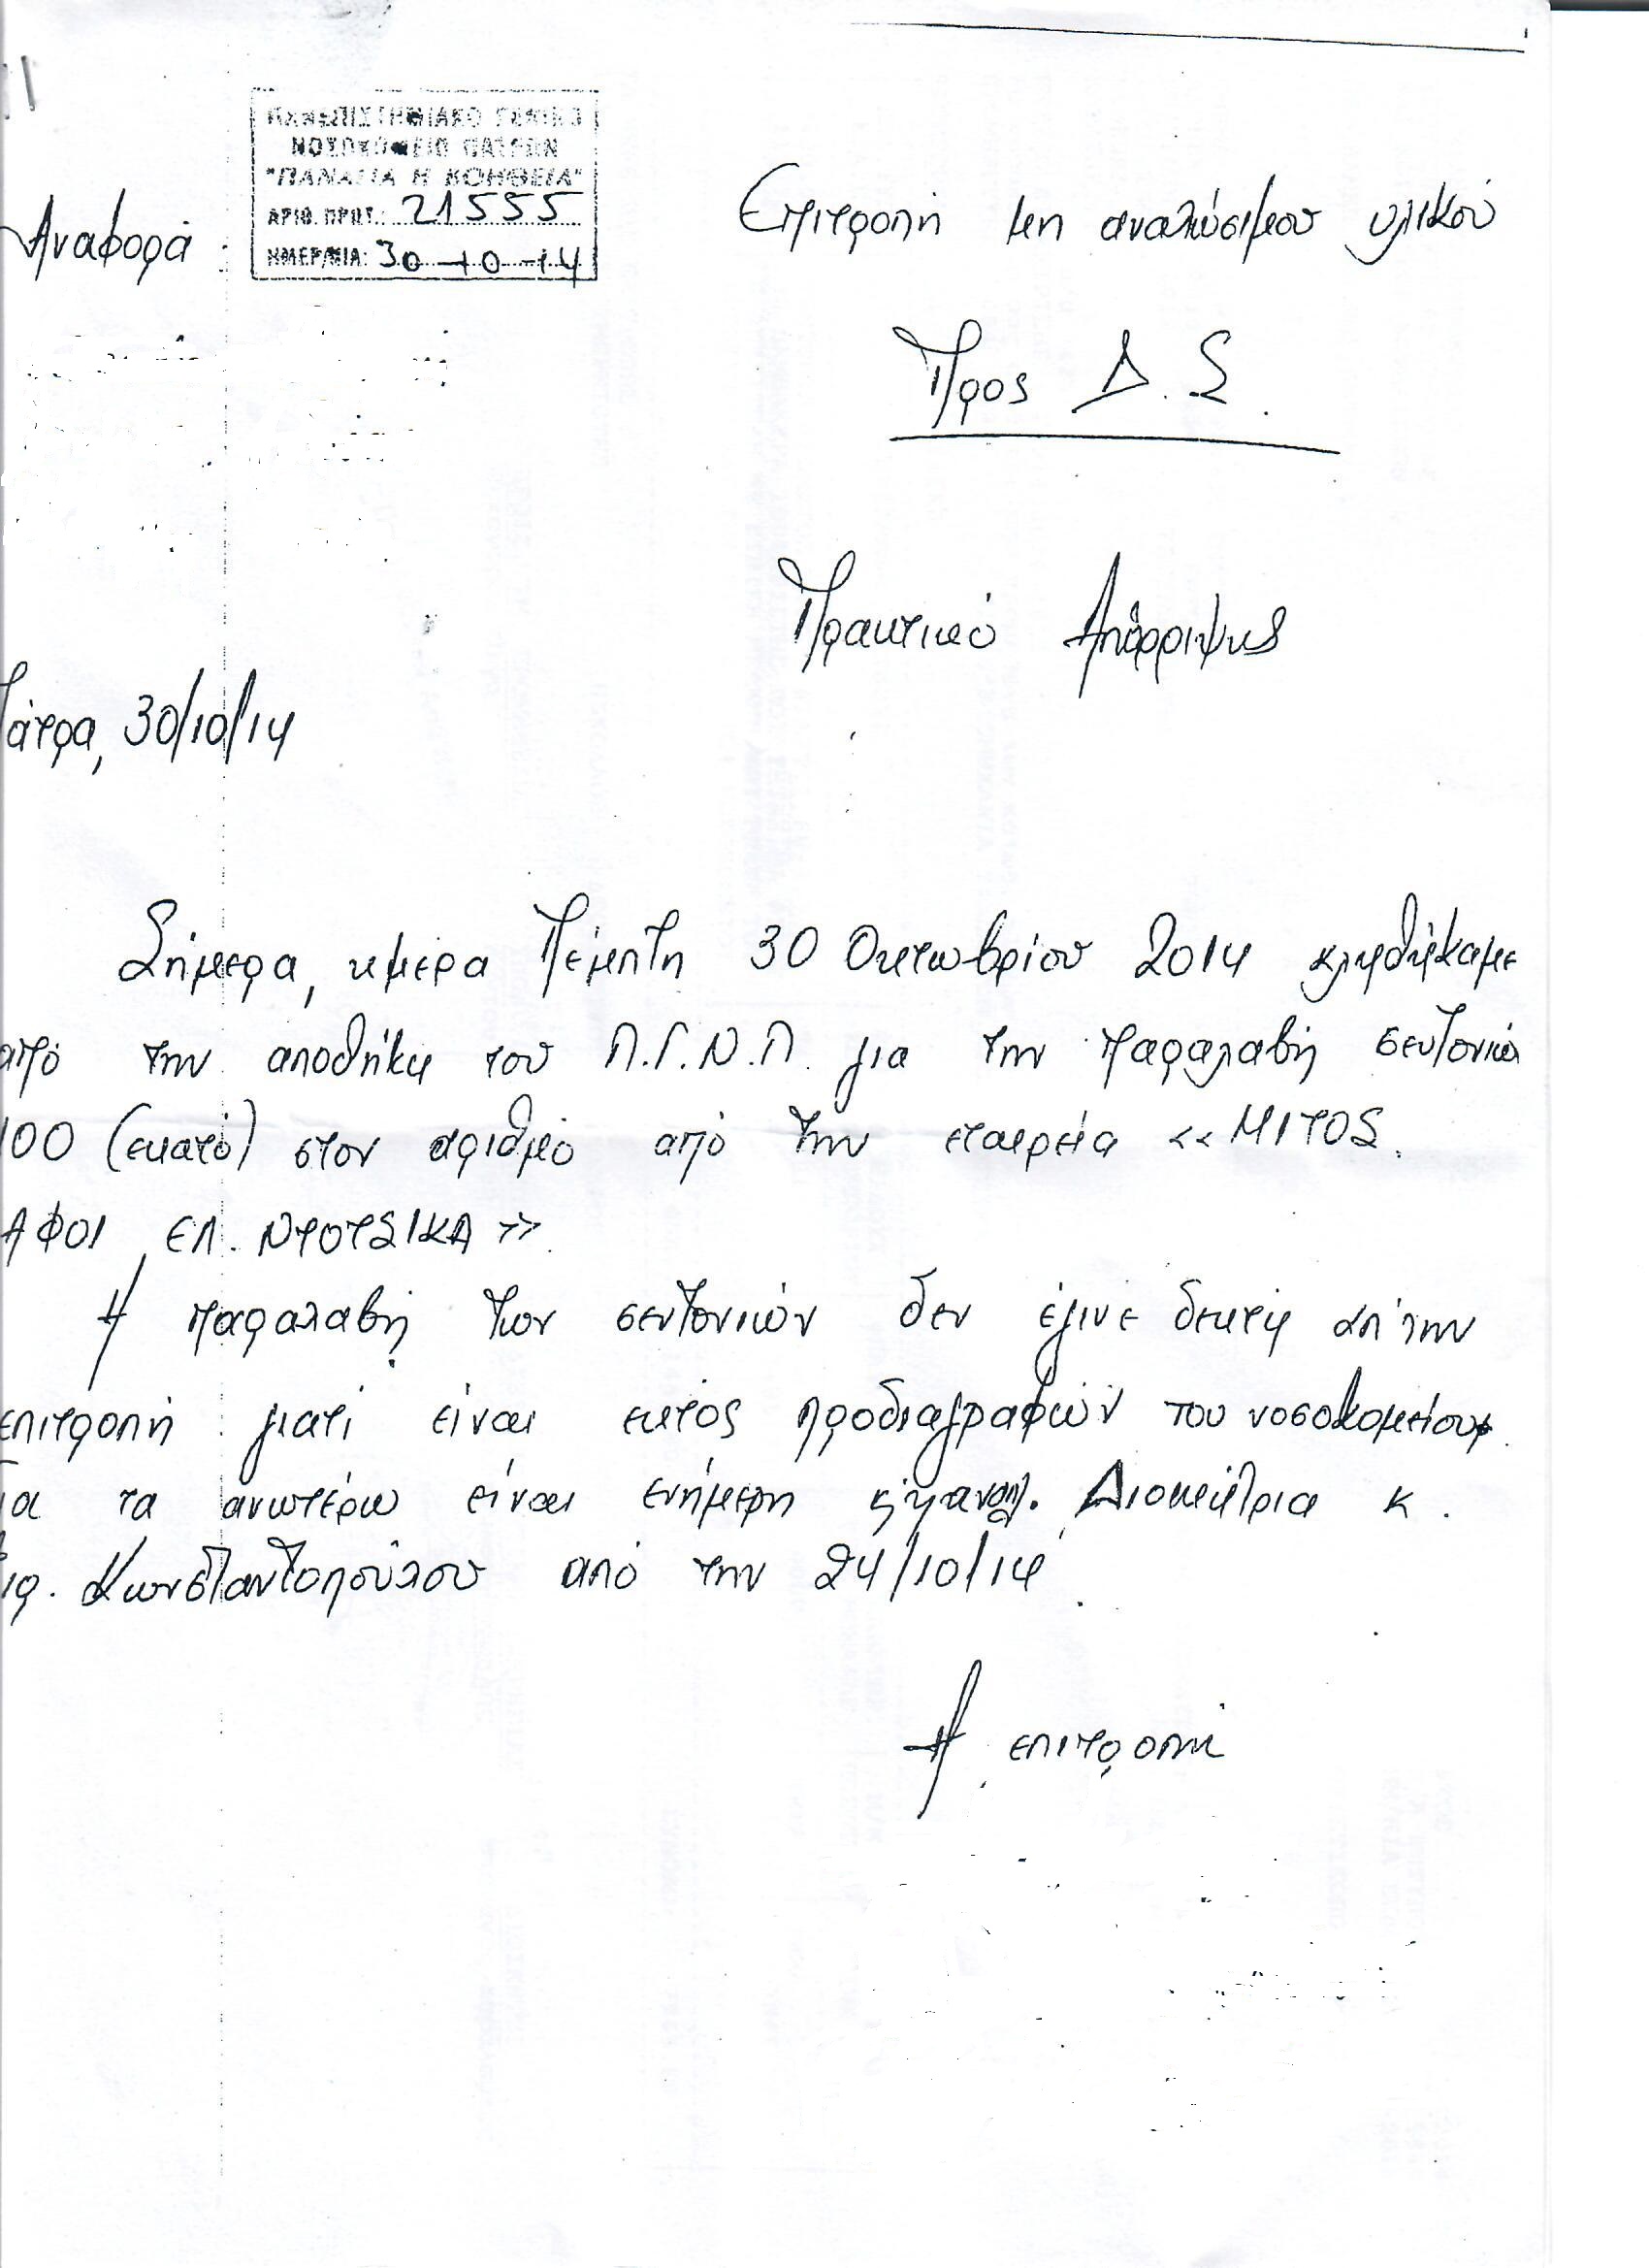 ΠΑΝΕΠΙΣΤΗΜΙΑΚΟ ΓΕΝΙΚΟ
ΝΟΣΟΚΟΜΕΙΟ ΠΑΤΡΩΝ
"ΠΑΝΑΓΙΑ Η ΒΟΗΘΕΙΑ"
ΑΡΙΘ. ΠΡΩΤ.: 21555
ΗΜΕΡ/ΝΙΑ: 30-10-14
Αναφορά
Επιτροπή μη αναλώσιμου υλικού
Προς Δ.Σ.
Πρακτικό Απόρριψης
Πάτρα, 30/10/14
Σήμερα, ημέρα Πέμπτη 30 Οκτωβρίου 2014 κληθήκαμε
από την αποθήκη του Π.Γ.Ν.Π. για την παραλαβή σεντονιών
100 (εκατό) στον αριθμό από την εταιρεία «ΜΙΤΟΣ
ΑΦΟΙ ΕΛ. ΝΤΟΤΣΙΚΑ»
Η παραλαβή των σεντονιών δεν έγινε δεκτή απ' την
επιτροπή γιατί είναι εκτός προδιαγραφών του νοσοκομείου.
Για τα ανωτέρω είναι ενήμερη η αναπλ. Διοικήτρια κ.
Κωνσταντοπούλου από την 24/10/14.
Η επιτροπή